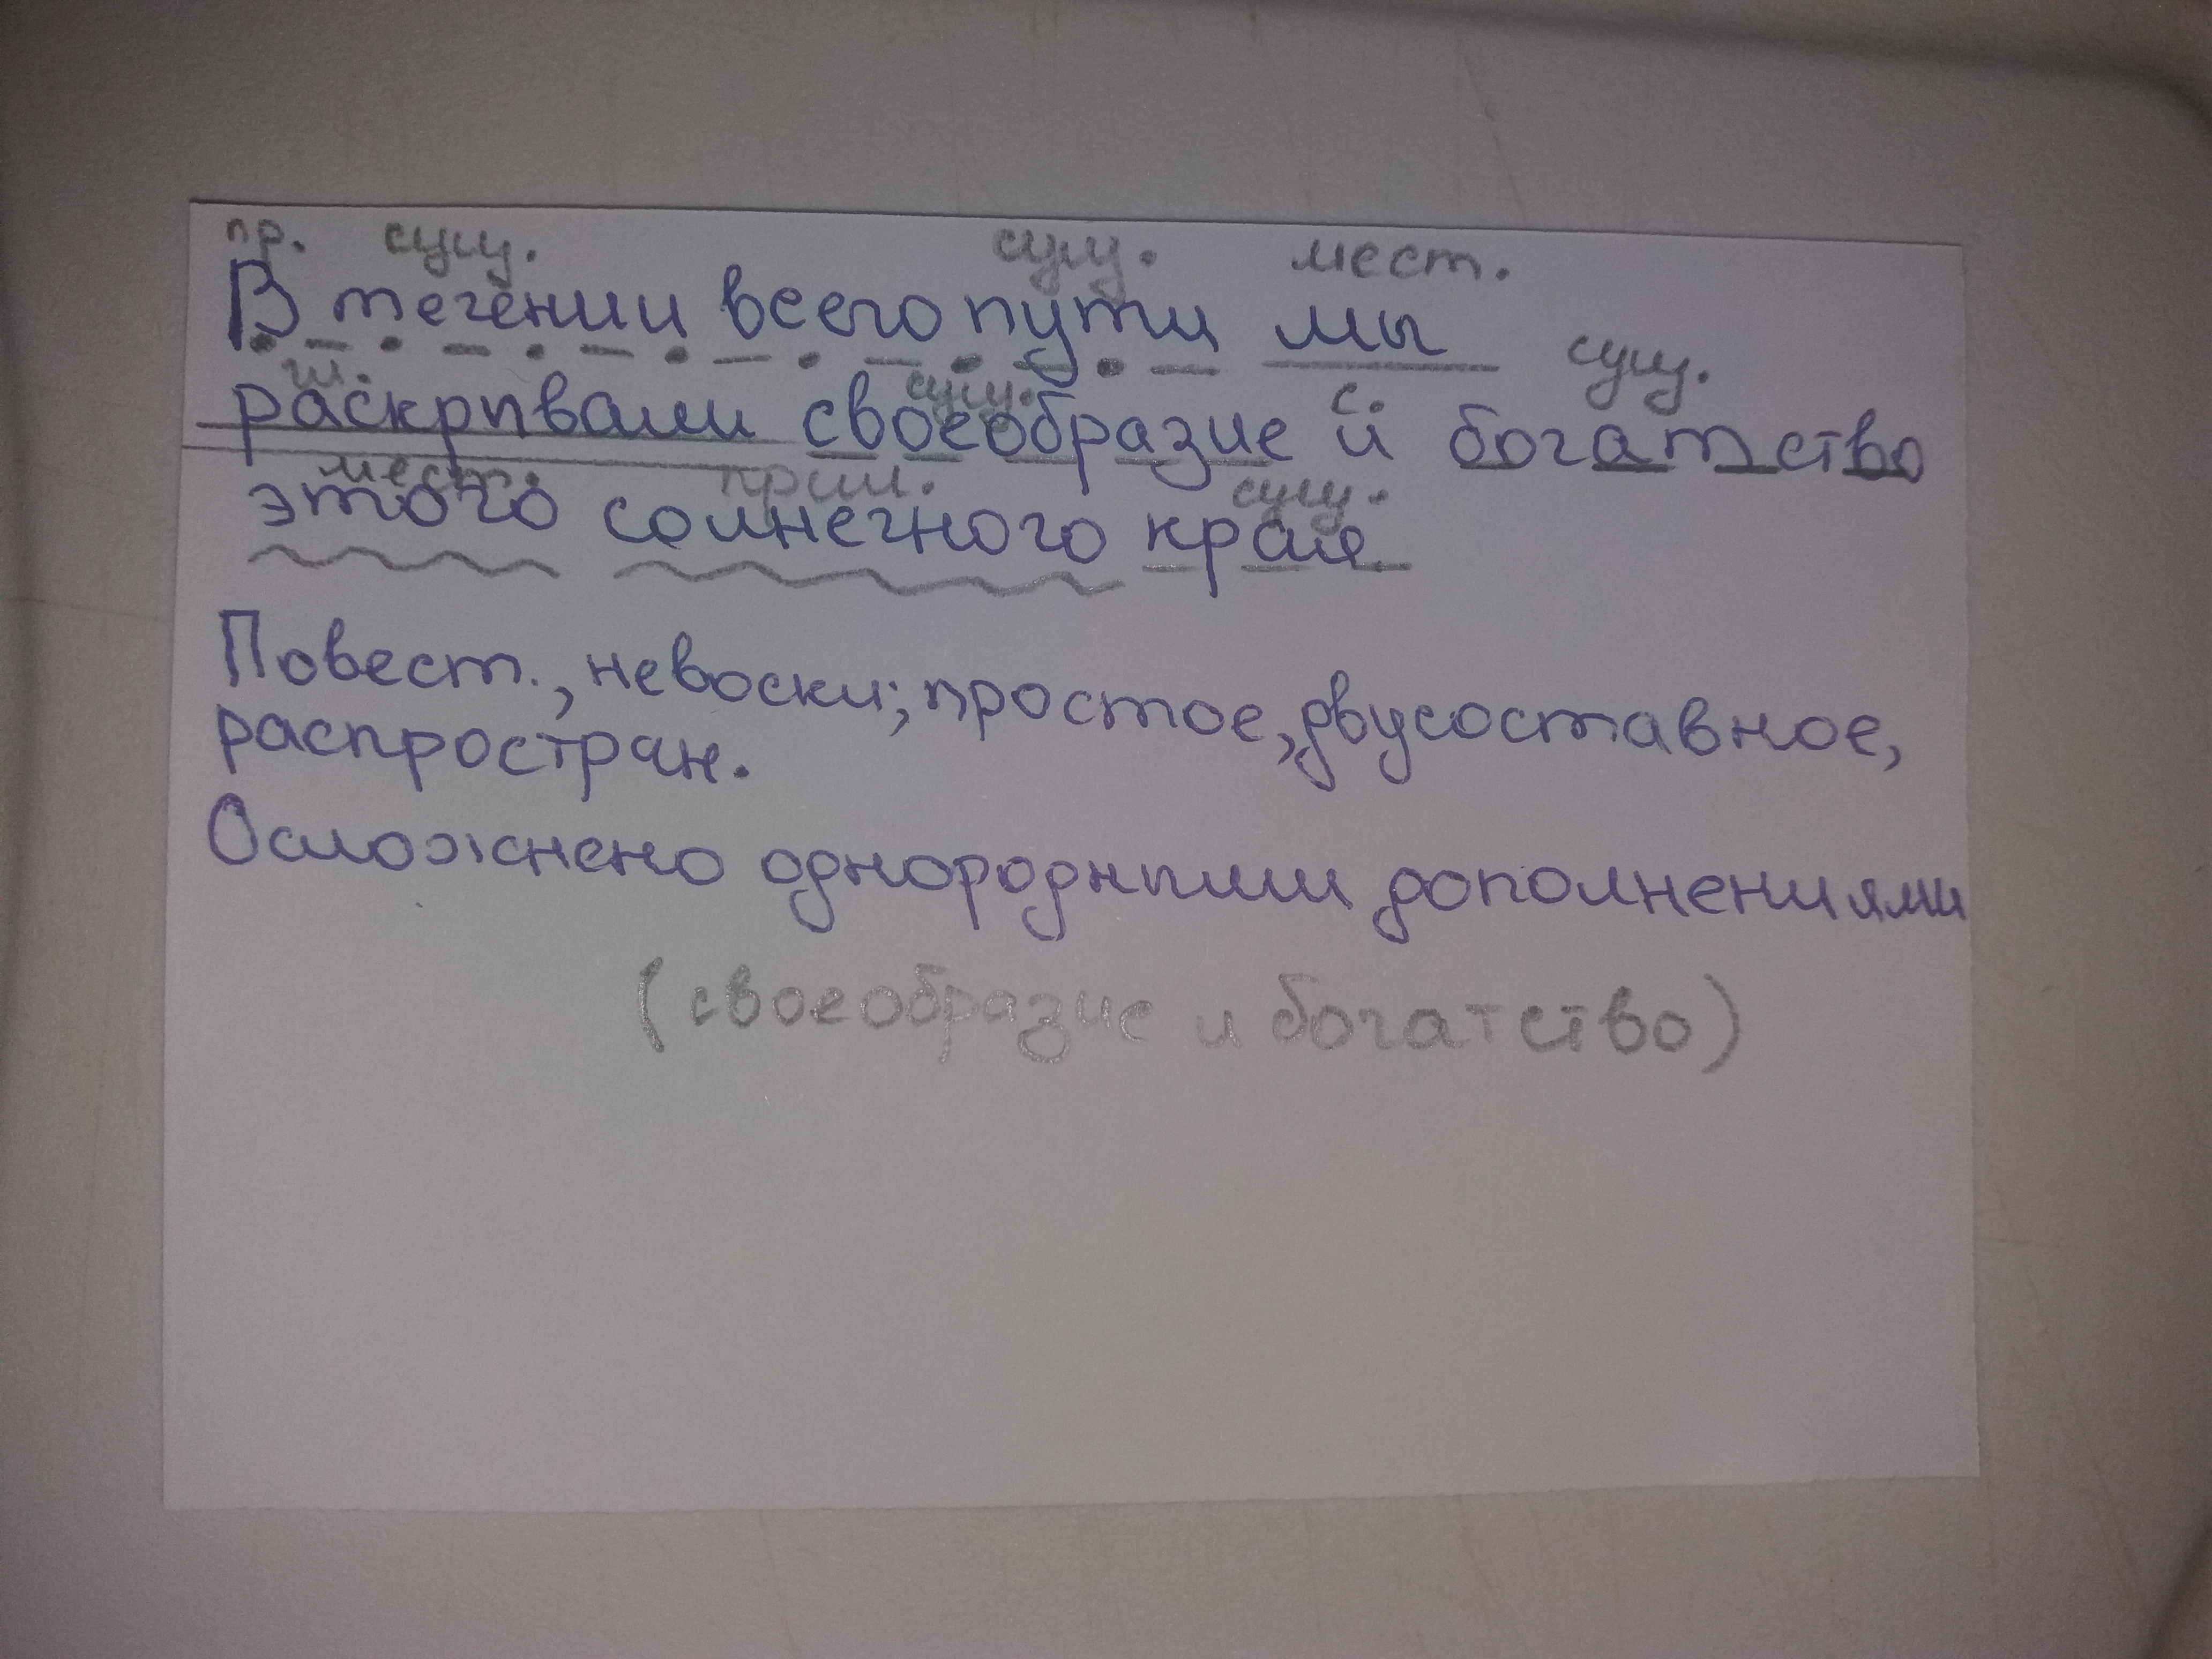 пр. сущ. сущ. мест.
В течении всего пути мы
гл. сущ. с. сущ.
раскрывали своеобразие и богатство
мест. прил. сущ.
этого солнечного края.
Повест., невоскл; простое, двусоставное,
распростран.
Осложнено однородными дополнениями
(своеобразие и богатство)